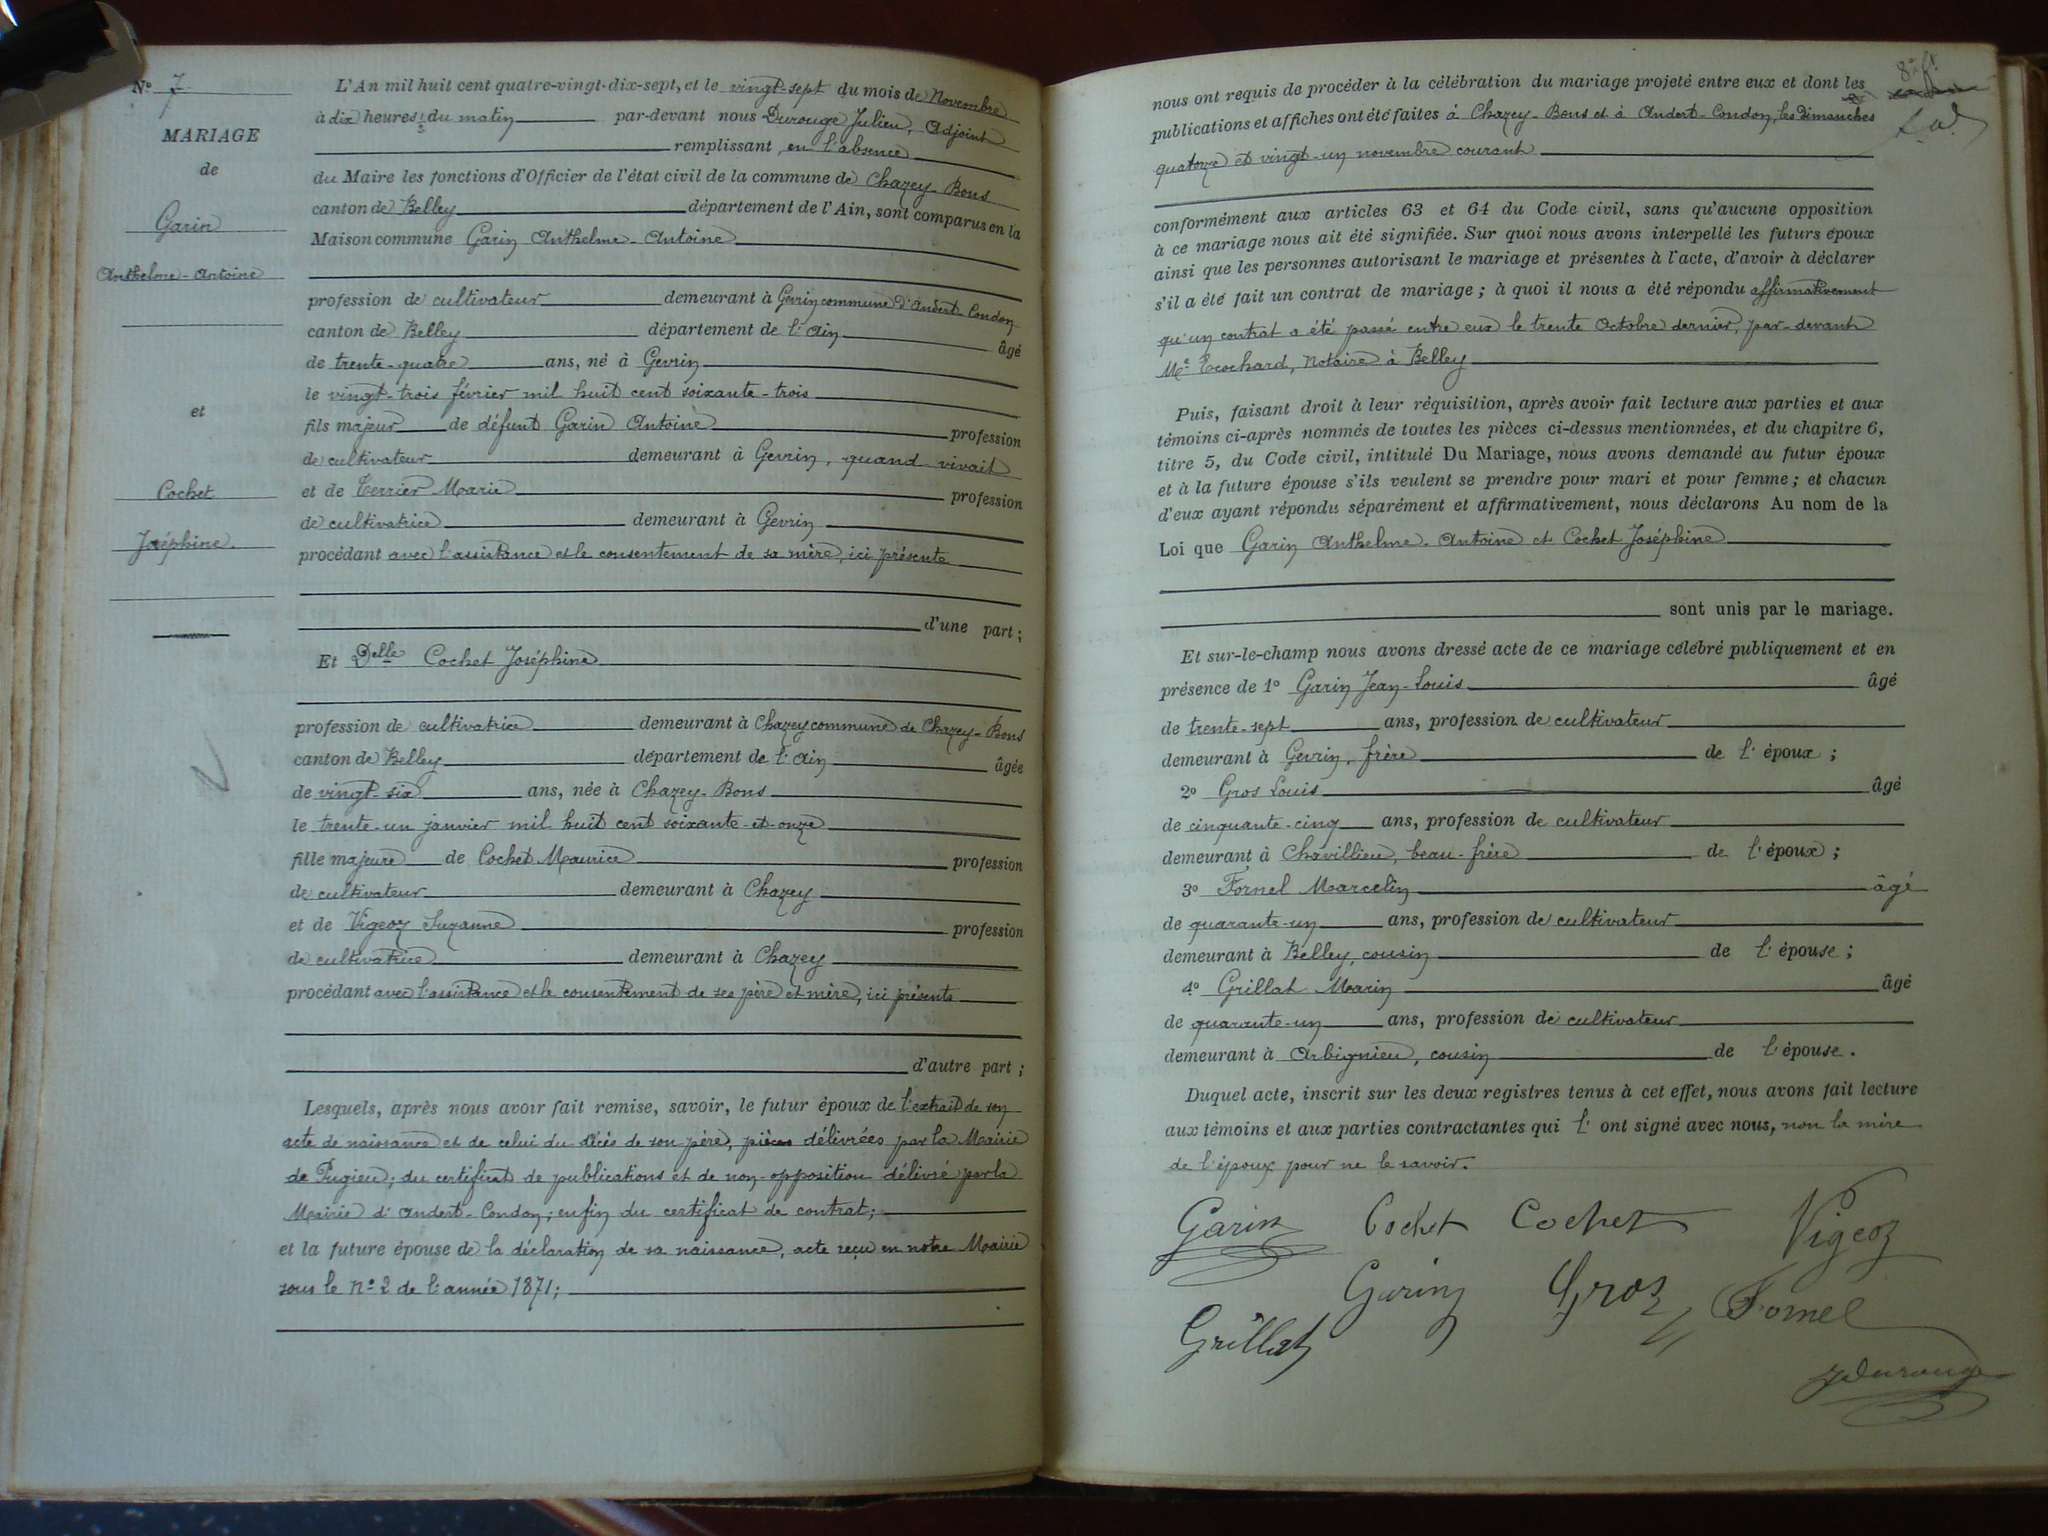 N° 7
MARIAGE
de
Garin
Anthelme-Antoine
et
Cochet
Joséphine.
L'An mil huit cent quatre-vingt-dix-sept, et le vingt-sept du mois de Novembre
à dix heures du matin par-devant nous Durouge Julien, Adjoint
remplissant, en l'absence
du Maire les fonctions d'Officier de l'état civil de la commune de Chazey-Bons
canton de Belley département de l'Ain, sont comparus en la
Maison commune Garin Anthelme-Antoine
profession de cultivateur demeurant à Gevrin commune d'Andert-Condon
canton de Belley département de l'Ain âgé
de trente-quatre ans, né à Gevrin
le vingt-trois février mil huit cent soixante-trois
fils majeur de défunt Garin Antoine profession
de cultivateur demeurant à Gevrin, quand vivait
et de Terrier Marie profession
de cultivatrice demeurant à Gevrin
procédant avec l'assistance et le consentement de sa mère, ici présente
d'une part;
Et Delle Cochet Joséphine
profession de cultivatrice demeurant à Chazey commune de Chazey-Bons
canton de Belley département de l'Ain âgée
de vingt-six ans, née à Chazey-Bons
le trente-un janvier mil huit cent soixante-et-onze
fille majeure de Cochet Maurice profession
de cultivateur demeurant à Chazey
et de Vigeoz Suzanne profession
de cultivatrice demeurant à Chazey
procédant avec l'assistance et le consentement de ses père et mère, ici présents
d'autre part;
Lesquels, après nous avoir fait remise, savoir, le futur époux de l'extrait de son
acte de naissance et de celui du décès de son père, pièces délivrées par la Mairie
de Pugieu; du certificat de publications et de non-opposition délivré par la
Mairie d'Andert-Condon; enfin du certificat de contrat;
et la future épouse de la déclaration de sa naissance, acte reçu en notre Mairie
sous le N° 2 de l'année 1871;
nous ont requis de procéder à la célébration du mariage projeté entre eux et dont les
publications et affiches ont été faites à Chazey-Bons et à Andert-Condon, les dimanches
quatorze et vingt-un novembre courant
conformément aux articles 63 et 64 du Code civil, sans qu'aucune opposition
à ce mariage nous ait été signifiée. Sur quoi nous avons interpellé les futurs époux
ainsi que les personnes autorisant le mariage et présentes à l'acte, d'avoir à déclarer
s'il a été fait un contrat de mariage; à quoi il nous a été répondu affirmativement
qu'un contrat a été passé entre eux le trente Octobre dernier, par-devant
Me Ecochard, Notaire à Belley
Puis, faisant droit à leur réquisition, après avoir fait lecture aux parties et aux
témoins ci-après nommés de toutes les pièces ci-dessus mentionnées, et du chapitre 6,
titre 5, du Code civil, intitulé Du Mariage, nous avons demandé au futur époux
et à la future épouse s'ils veulent se prendre pour mari et pour femme; et chacun
d'eux ayant répondu séparément et affirmativement, nous déclarons Au nom de la
Loi que Garin Anthelme-Antoine et Cochet Joséphine
sont unis par le mariage.
Et sur-le-champ nous avons dressé acte de ce mariage célébré publiquement et en
présence de 1° Garin Jean-Louis âgé
de trente-sept ans, profession de cultivateur
demeurant à Gevrin, frère de l'époux;
2° Gros Louis âgé
de cinquante-cinq ans, profession de cultivateur
demeurant à Chavillieu, beau-frère de l'époux;
3° Fornel Marcelin âgé
de quarante-un ans, profession de cultivateur
demeurant à Belley, cousin de l'épouse;
4° Grillat Marin âgé
de quarante-un ans, profession de cultivateur
demeurant à Arbignieu, cousin de l'épouse.
Duquel acte, inscrit sur les deux registres tenus à cet effet, nous avons fait lecture
aux témoins et aux parties contractantes qui l' ont signé avec nous, non la mère
de l'époux pour ne le savoir.
Garin Cochet Cochet Vigeoz
Garin Gros Fornel
Grillat
JDurouge